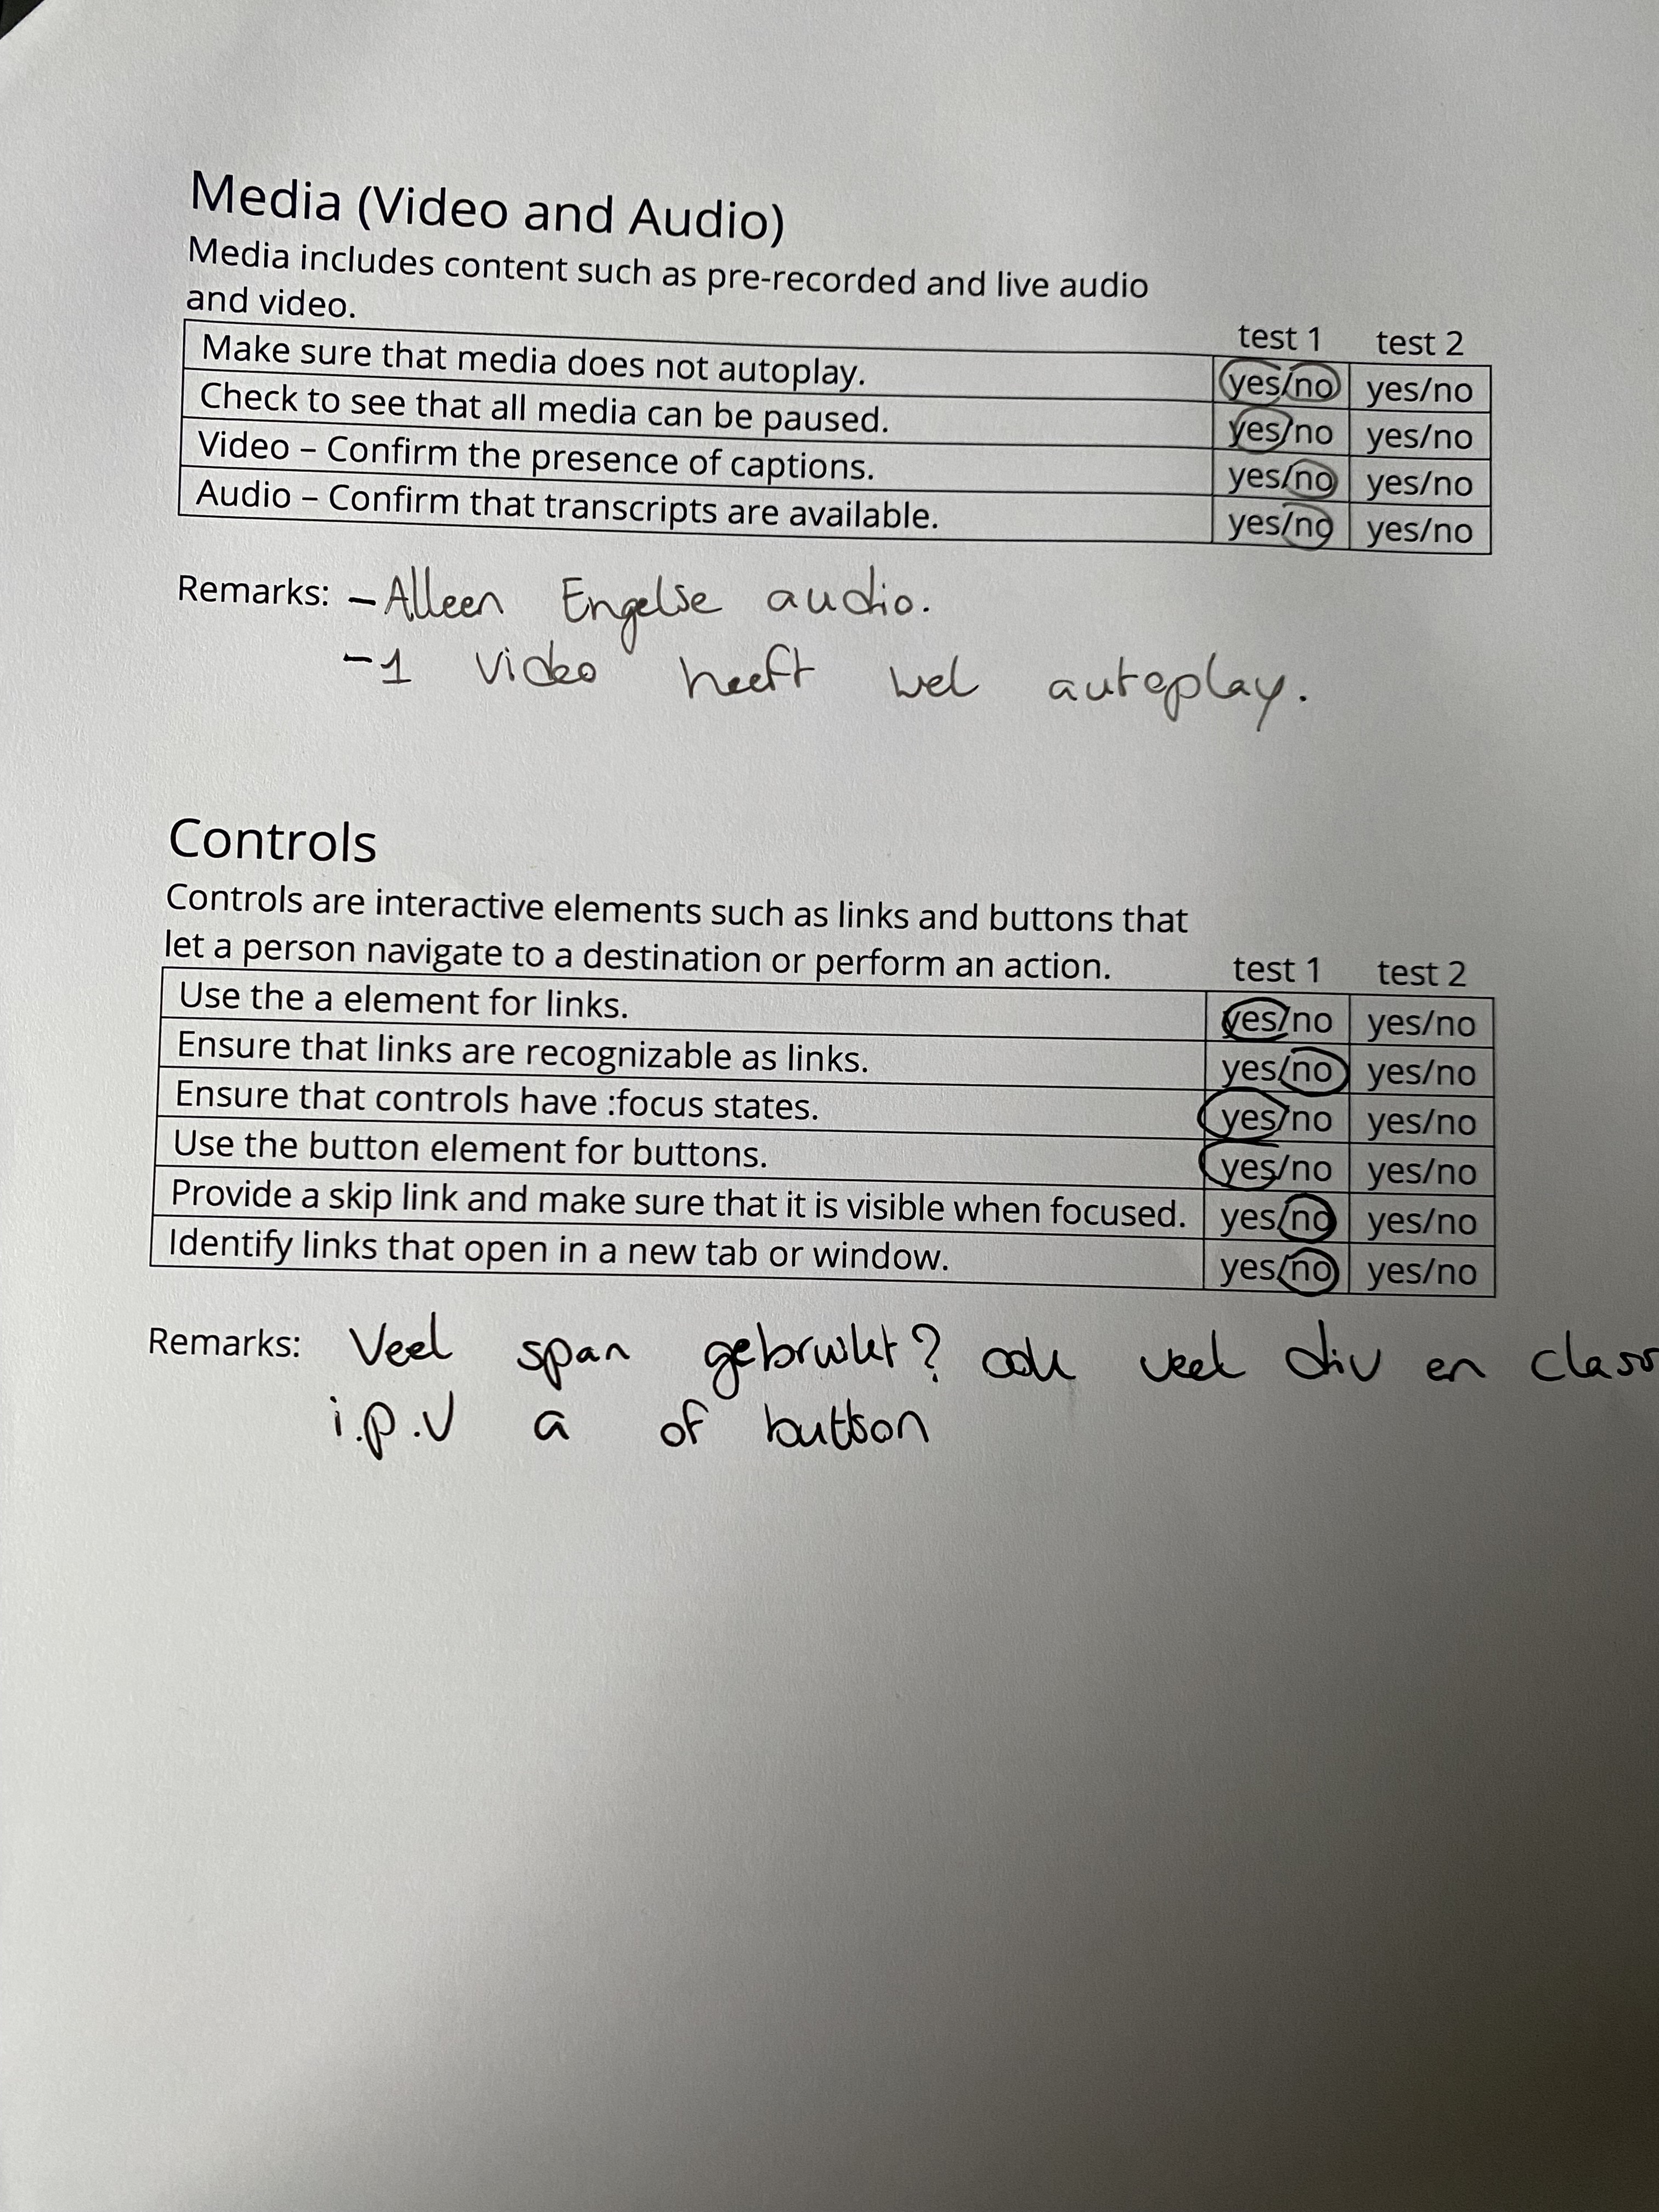 Media (Video and Audio)
Media includes content such as pre-recorded and live audio
and video.
test 1 test 2
Make sure that media does not autoplay. yes/no yes/no
Check to see that all media can be paused. yes/no yes/no
Video – Confirm the presence of captions. yes/no yes/no
Audio – Confirm that transcripts are available. yes/no yes/no
Remarks: – Alleen Engelse audio.
– 1 video heeft wel autoplay.
Controls
Controls are interactive elements such as links and buttons that
let a person navigate to a destination or perform an action.
test 1 test 2
Use the a element for links. yes/no yes/no
Ensure that links are recognizable as links. yes/no yes/no
Ensure that controls have :focus states. yes/no yes/no
Use the button element for buttons. yes/no yes/no
Provide a skip link and make sure that it is visible when focused. yes/no yes/no
Identify links that open in a new tab or window. yes/no yes/no
Remarks: Veel span gebruikt? ook veel div en class
i.p.v a of button